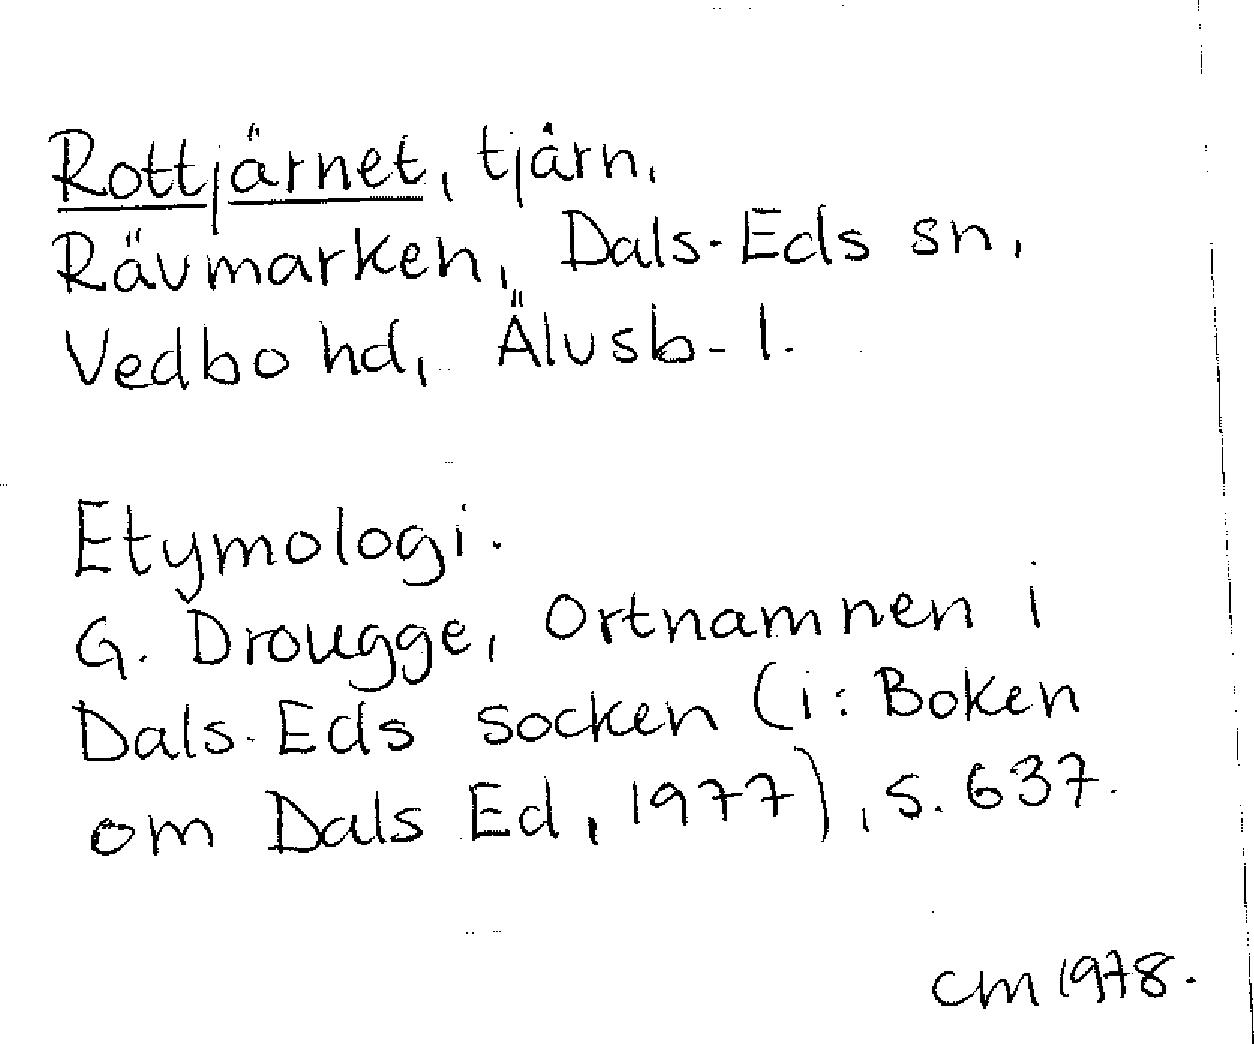 Rottjärnet, tjärn,
Rävmarken, Dals-Eds sn,
Vedbo hd, Älvsb. l.
Etymologi.
G. Drougge, Ortnamnen i
Dals-Eds socken (i: Boken
om Dals Ed, 1977), s. 637.
CM 1978.